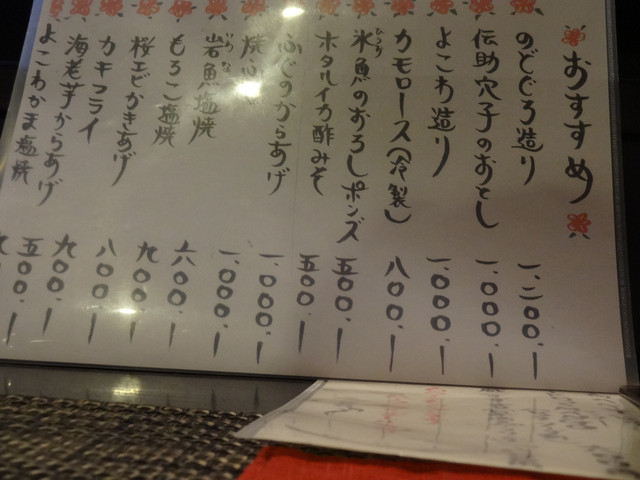 おすすめ
のどぐろ造り 一、二〇〇、ー
伝助穴子のおとし 一、〇〇〇、ー
よこわ造り 一、〇〇〇、ー
カモロース(冷製) 八〇〇、ー
氷魚のおろしポンズ 五〇〇、ー
ホタルイカ酢みそ 五〇〇、ー
ふぐのからあげ 一、〇〇〇、ー
焼ふ 一、〇〇〇、ー
岩魚塩焼 六〇〇、ー
もろこ塩焼 九〇〇、ー
桜エビかきあげ 八〇〇、ー
カキフライ 九〇〇、ー
海老芋からあげ 五〇〇、ー
よこわかま塩焼 九